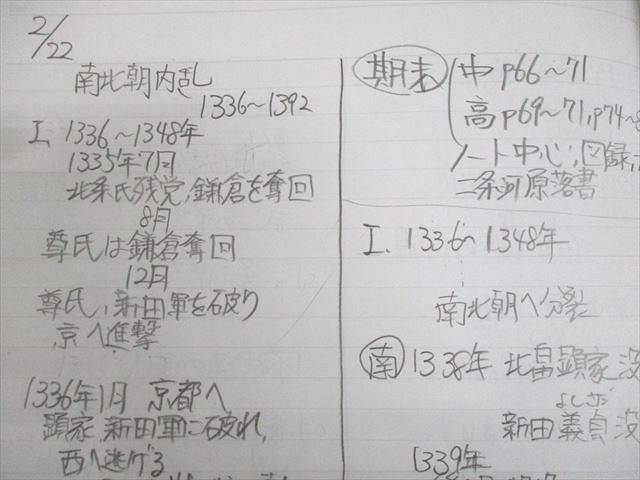 2/22
南北朝内乱
1336〜1392
I. 1336〜1348年
1335年7月
北条氏残党,鎌倉を奪回
8月
尊氏は鎌倉奪回
12月
尊氏,新田軍を破り
京へ進撃
1336年1月 京都へ
顕家,新田軍に破れ,
西へ逃げる
期末 中 p66〜71
高 p69〜71, p74〜
ノート中心,図録,
二条河原落書
I. 1336〜1348年
南北朝へ分裂
南 1338年 北畠顕家没
よしさだ
新田義貞没
1339年